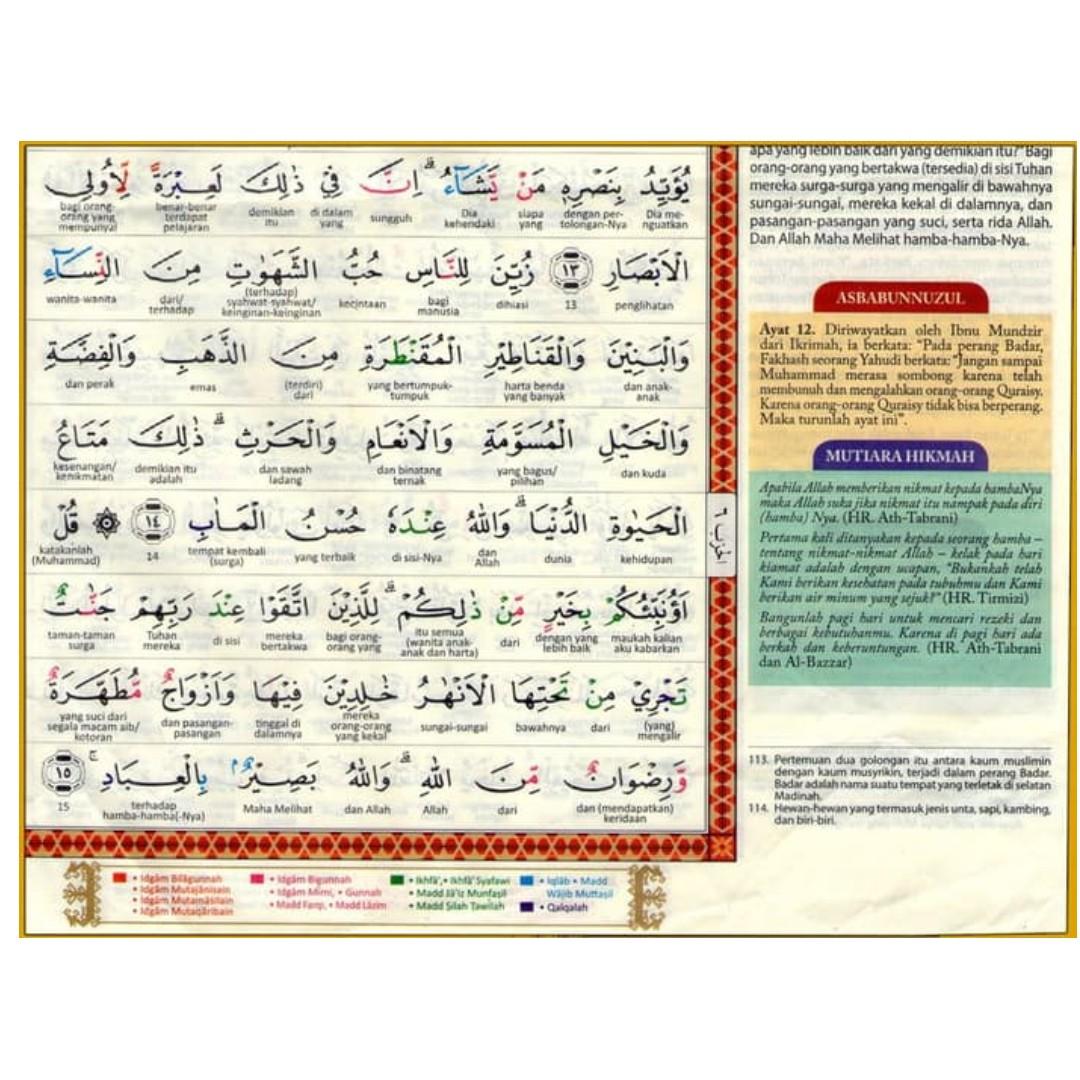 يُؤَيِّدُ بِنَصْرِهٖ مَنْ يَّشَاۤءُ ۗ اِنَّ فِيْ ذٰلِكَ لَعِبْرَةً لِّاُولِى
Dia me-nguatkan
dengan per-tolongan-Nya
siapa yang
Dia kehendaki
sungguh
di dalam yang
demikian itu
benar-benar terdapat pelajaran
bagi orang-orang yang mempunyai
الْاَبْصَارِ ١٣ زُيِّنَ لِلنَّاسِ حُبُّ الشَّهَوٰتِ مِنَ النِّسَاۤءِ
penglihatan
13
dihiasi
bagi manusia
kecintaan
(terhadap) syahwat-syahwat/ keinginan-keinginan
dari/ terhadap
wanita-wanita
وَالْبَنِيْنَ وَالْقَنَاطِيْرِ الْمُقَنْطَرَةِ مِنَ الذَّهَبِ وَالْفِضَّةِ
dan anak-anak
harta benda yang banyak
yang bertumpuk-tumpuk
(terdiri) dari
emas
dan perak
وَالْخَيْلِ الْمُسَوَّمَةِ وَالْاَنْعَامِ وَالْحَرْثِ ۗ ذٰلِكَ مَتَاعُ
dan kuda
yang bagus/ pilihan
dan binatang ternak
dan sawah ladang
demikian itu adalah
kesenangan/ kenikmatan
الْحَيٰوةِ الدُّنْيَا ۗ وَاللّٰهُ عِنْدَهٗ حُسْنُ الْمَاٰبِ ١٤ ۞ قُلْ
kehidupan
dunia
dan Allah
di sisi-Nya
yang terbaik
tempat kembali (surga)
14
katakanlah (Muhammad)
اَؤُنَبِّئُكُمْ بِخَيْرٍ مِّنْ ذٰلِكُمْ ۗ لِلَّذِيْنَ اتَّقَوْا عِنْدَ رَبِّهِمْ جَنّٰتٌ
maukah kalian aku kabarkan
dengan yang lebih baik
dari
itu semua (wanita anak-anak dan harta)
bagi orang-orang yang
mereka bertakwa
di sisi
Tuhan mereka
taman-taman surga
تَجْرِيْ مِنْ تَحْتِهَا الْاَنْهٰرُ خٰلِدِيْنَ فِيْهَا وَاَزْوَاجٌ مُّطَهَّرَةٌ
(yang) mengalir
dari
bawahnya
sungai-sungai
mereka orang-orang yang kekal
tinggal di dalamnya
dan pasangan-pasangan
yang suci dari segala macam aib/ kotoran
وَّرِضْوَانٌ مِّنَ اللّٰهِ ۗ وَاللّٰهُ بَصِيْرٌۢ بِالْعِبَادِ ۚ ١٥
dan (mendapatkan) keridaan
dari
Allah
dan Allah
Maha Melihat
terhadap hamba-hamba(-Nya)
15
الحزب ٦
apa yang lebih baik dari yang demikian itu?" Bagi
orang-orang yang bertakwa (tersedia) di sisi Tuhan
mereka surga-surga yang mengalir di bawahnya
sungai-sungai, mereka kekal di dalamnya, dan
pasangan-pasangan yang suci, serta rida Allah.
Dan Allah Maha Melihat hamba-hamba-Nya.
ASBABUNNUZUL
Ayat 12. Diriwayatkan oleh Ibnu Mundzir
dari Ikrimah, ia berkata: "Pada perang Badar,
Fakhash seorang Yahudi berkata: "Jangan sampai
Muhammad merasa sombong karena telah
membunuh dan mengalahkan orang-orang Quraisy.
Karena orang-orang Quraisy tidak bisa berperang.
Maka turunlah ayat ini".
MUTIARA HIKMAH
Apabila Allah memberikan nikmat kepada hambaNya
maka Allah suka jika nikmat itu nampak pada diri
(hamba) Nya. (HR. Ath-Tabrani)
Pertama kali ditanyakan kepada seorang hamba –
tentang nikmat-nikmat Allah – kelak pada hari
kiamat adalah dengan ucapan, "Bukankah telah
Kami berikan kesehatan pada tubuhmu dan Kami
berikan air minum yang sejuk?" (HR. Tirmizi)
Bangunlah pagi hari untuk mencari rezeki dan
berbagai kebutuhanmu. Karena di pagi hari ada
berkah dan keberuntungan. (HR. Ath-Tabrani
dan Al-Bazzar)
113. Pertemuan dua golongan itu antara kaum muslimin
dengan kaum musyrikin, terjadi dalam perang Badar.
Badar adalah nama suatu tempat yang terletak di selatan
Madinah.
114. Hewan-hewan yang termasuk jenis unta, sapi, kambing,
dan biri-biri.
• Idgām Bilāgunnah
• Idgām Mutajānisain
• Idgām Mutamāśilain
• Idgām Mutaqāribain
• Idgām Bigunnah
• Idgām Mimi, • Gunnah
• Madd Farqi, • Madd Lāzim
• Ikhfā', • Ikhfā' Syafawi
• Madd Jā'iz Munfaṣil
• Madd Ṣilah Ṭawilah
• Iqlāb • Madd
Wājib Muttaṣil
• Qalqalah